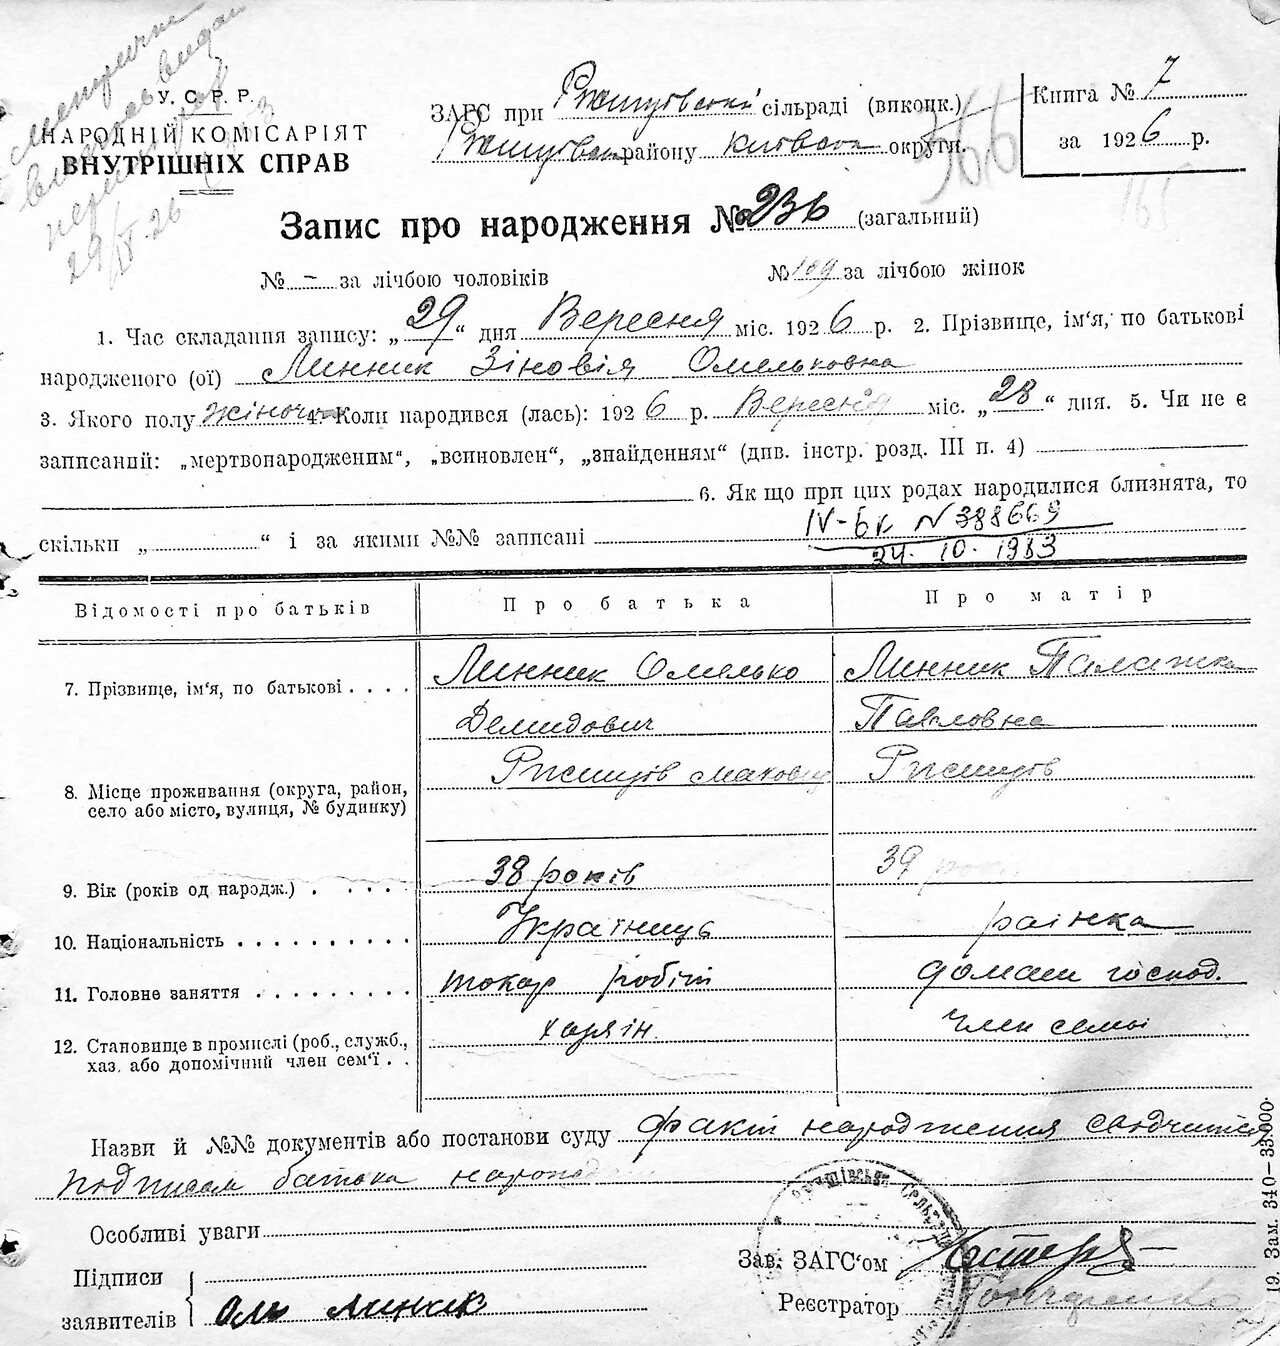 Метрични
видан
29/IX 26
У. С. Р. Р.
НАРОДНІЙ КОМІСАРІЯТ
ВНУТРІШНІХ СПРАВ
ЗАГС при Ржищівській сільраді (виконк.)
Ржищівськ району Київськ округи.
366
Книга № 7
за 1926 р.
Запис про народження № 236 (загальний)
№ – за лічбою чоловіків № 109 за лічбою жінок
1. Час складання запису: „29“ дня Вересня міс. 1926 р. 2. Прізвище, ім‘я, по батькові
народженого (ої) Линник Зіновія Омельковна
3. Якого полу жіноч 4. Коли народився (лась): 1926 р. Вересня міс. „28“ дня. 5. Чи не є
записаний: „мертвонародженим“, „всиновлен“, „знайденням“ (див. інстр. розд. III п. 4)
6. Як що при цих родах народилися близнята, то
скільки „ “ і за якими №№ записані
IV-БК N 388669
24. 10. 1983
Відомості про батьків Про батька Про матір
7. Прізвище, ім‘я, по батькові . . . . Линник Омелько Линник Палажка
Демидович Павловна
8. Місце проживання (округа, район, село або місто, вулиця, № будинку) Ржищів Ржищів
9. Вік (років од народж.) . . . . . 38 років 39
10. Національність . . . . . . . . . . Українець раінка
11. Головне заняття . . . . . . . . . токар робіт домаш господ.
12. Становище в промислі (роб., служб., хазяїн член семьі
хаз. або допомічний член сем‘ї . .
Назви й №№ документів або постанови суду факт народження сводчится
подписом батька
Особливі уваги
Ржищівська Сельрада
Зав. ЗАГС‘ом
Підписи
заявителів Линник
Реєстратор
19. Зам. 340—33.000.